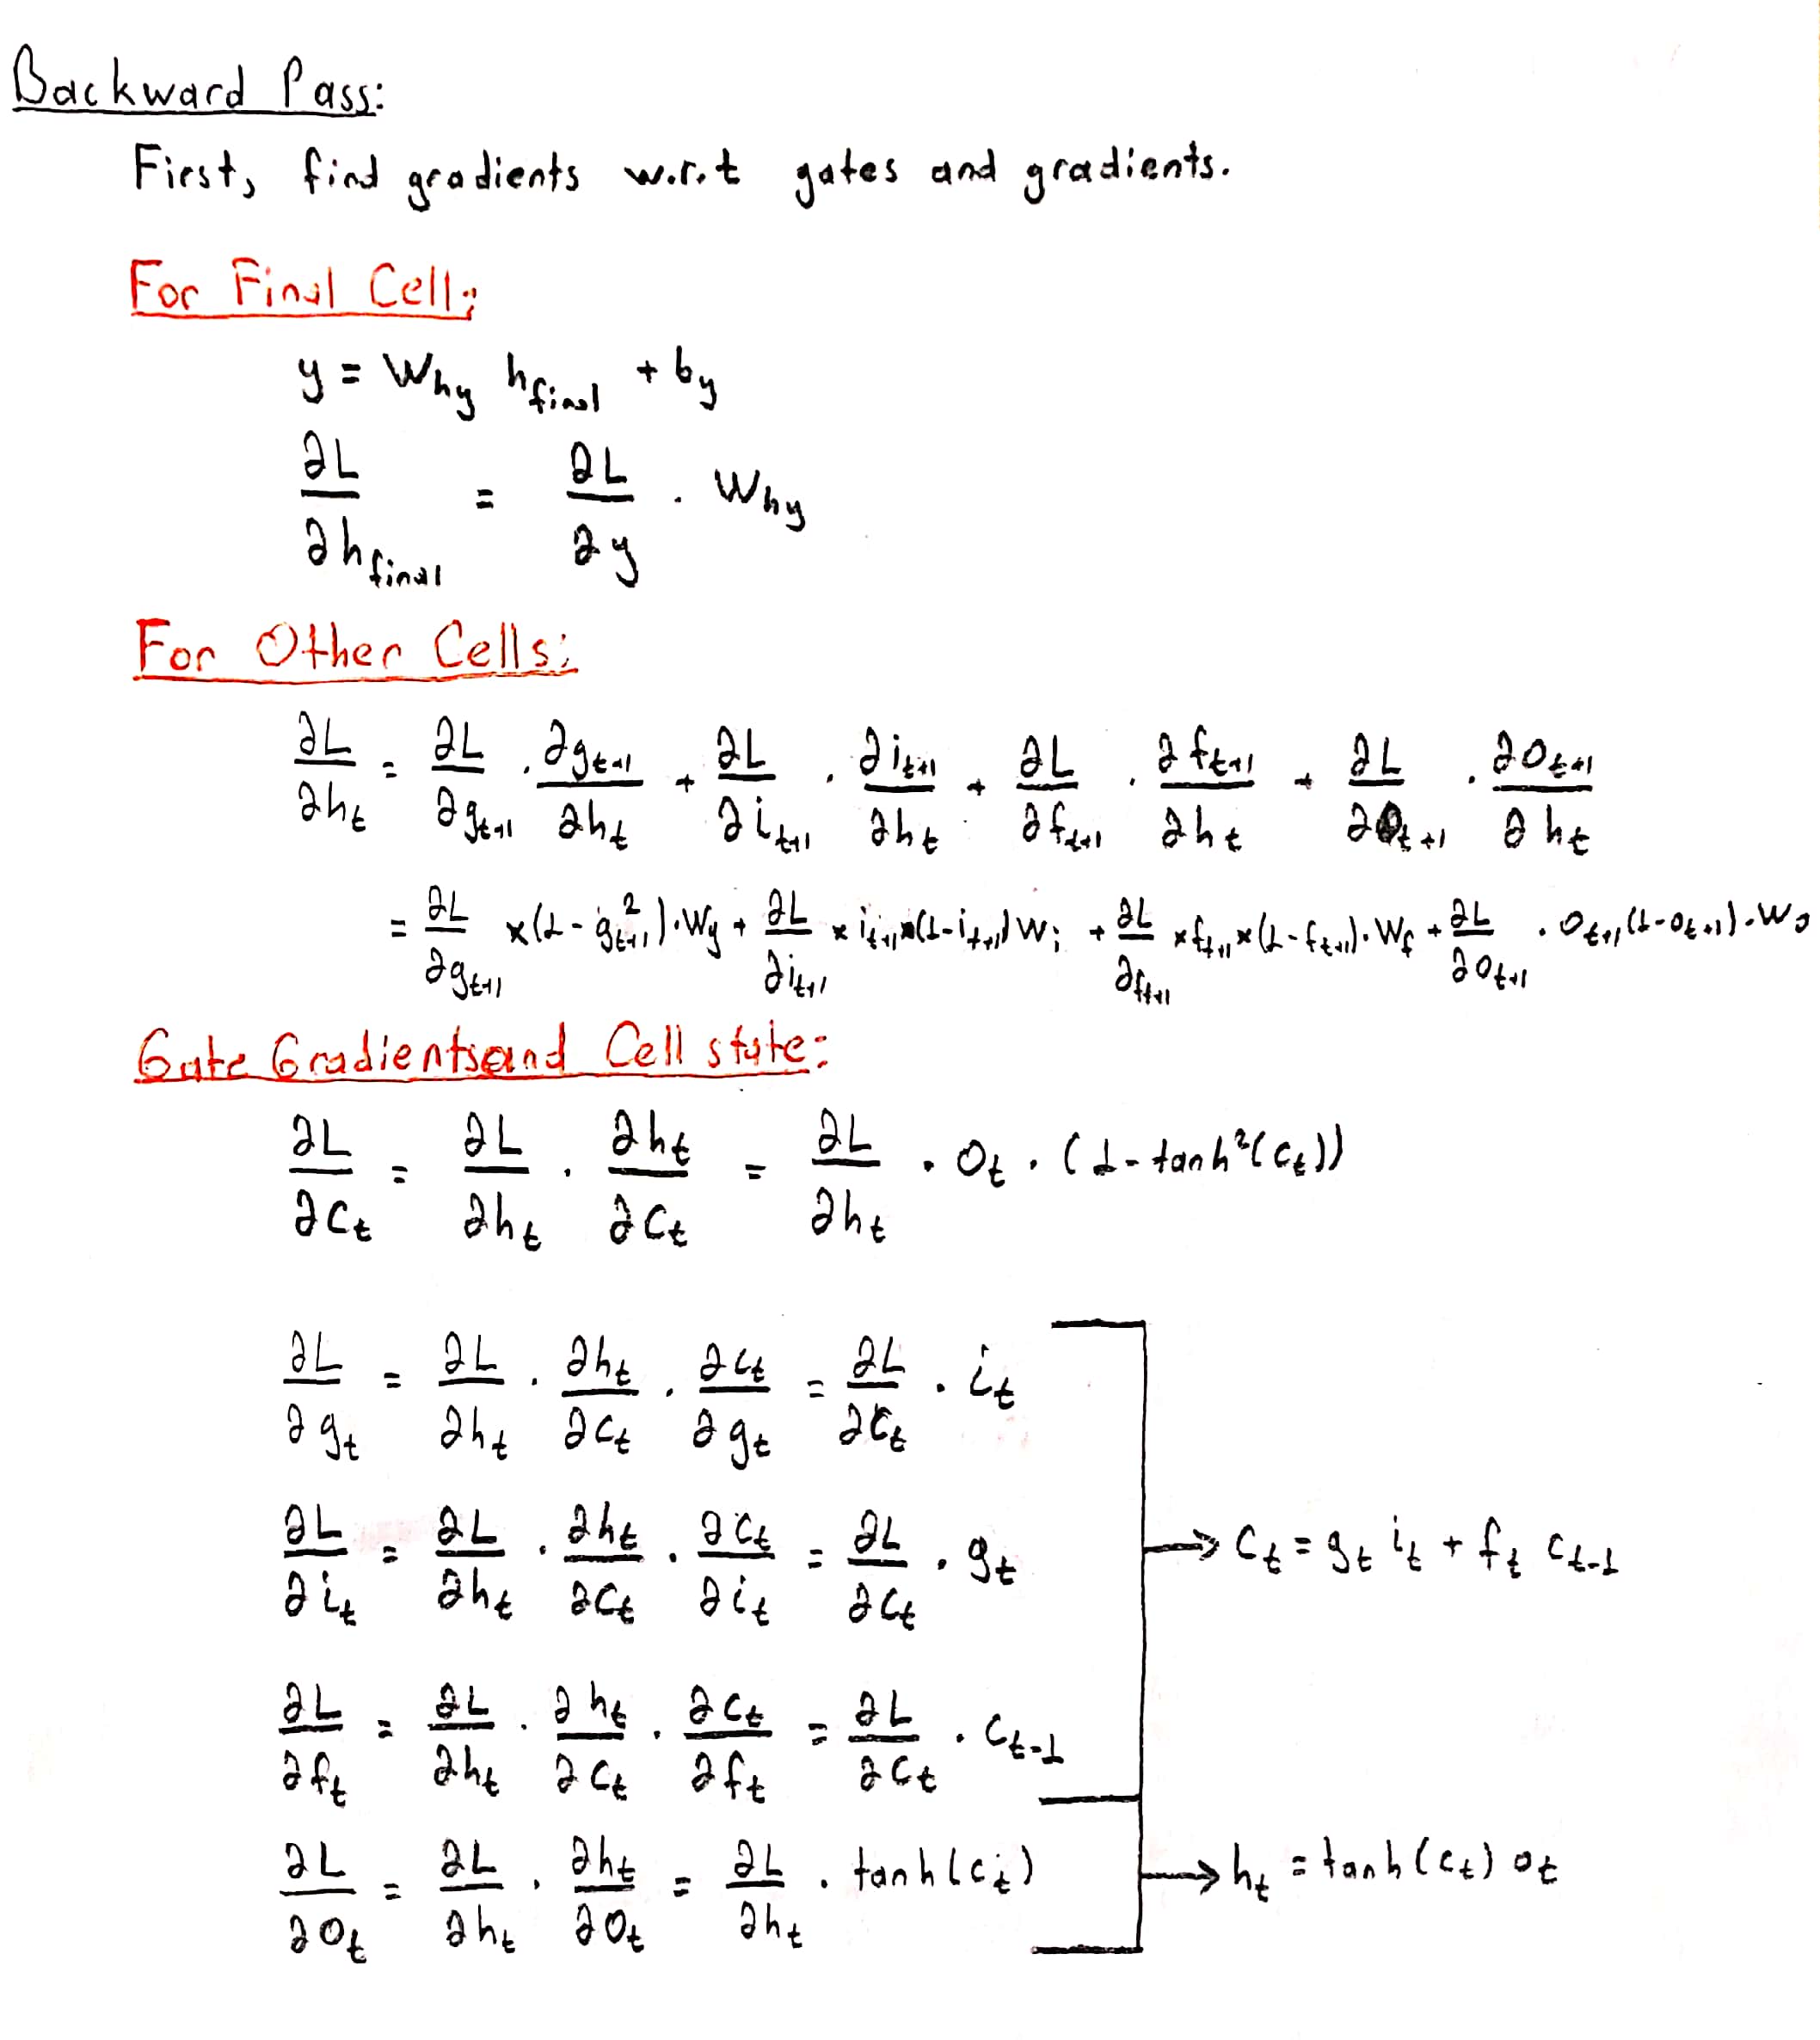 Backward Pass:
First, find gradients w.r.t gates and gradients.
For Final Cell:
y = W_hy h_final + b_y
∂L/∂h_final = ∂L/∂y . W_hy
For Other Cells:
∂L/∂h_t = ∂L/∂g_t+1 . ∂g_t+1/∂h_t + ∂L/∂i_t+1 . ∂i_t+1/∂h_t + ∂L/∂f_t+1 . ∂f_t+1/∂h_t + ∂L/∂o_t+1 . ∂o_t+1/∂h_t
= ∂L/∂g_t+1 x (1 - g²_t+1) . W_g + ∂L/∂i_t+1 x i_t+1 x (1 - i_t+1) W_i + ∂L/∂f_t+1 x f_t+1 x (1 - f_t+1) . W_f + ∂L/∂o_t+1 . o_t+1 (1 - o_t+1) . W_o
Gate Gradients and Cell state:
∂L/∂c_t = ∂L/∂h_t . ∂h_t/∂c_t = ∂L/∂h_t . o_t . (1 - tanh²(c_t))
∂L/∂g_t = ∂L/∂h_t . ∂h_t/∂c_t . ∂c_t/∂g_t = ∂L/∂c_t . i_t
∂L/∂i_t = ∂L/∂h_t . ∂h_t/∂c_t . ∂c_t/∂i_t = ∂L/∂c_t . g_t
→ c_t = g_t i_t + f_t c_t-1
∂L/∂f_t = ∂L/∂h_t . ∂h_t/∂c_t . ∂c_t/∂f_t = ∂L/∂c_t . c_t-1
∂L/∂o_t = ∂L/∂h_t . ∂h_t/∂o_t = ∂L/∂h_t . tanh(c_t)
→ h_t = tanh(c_t) o_t